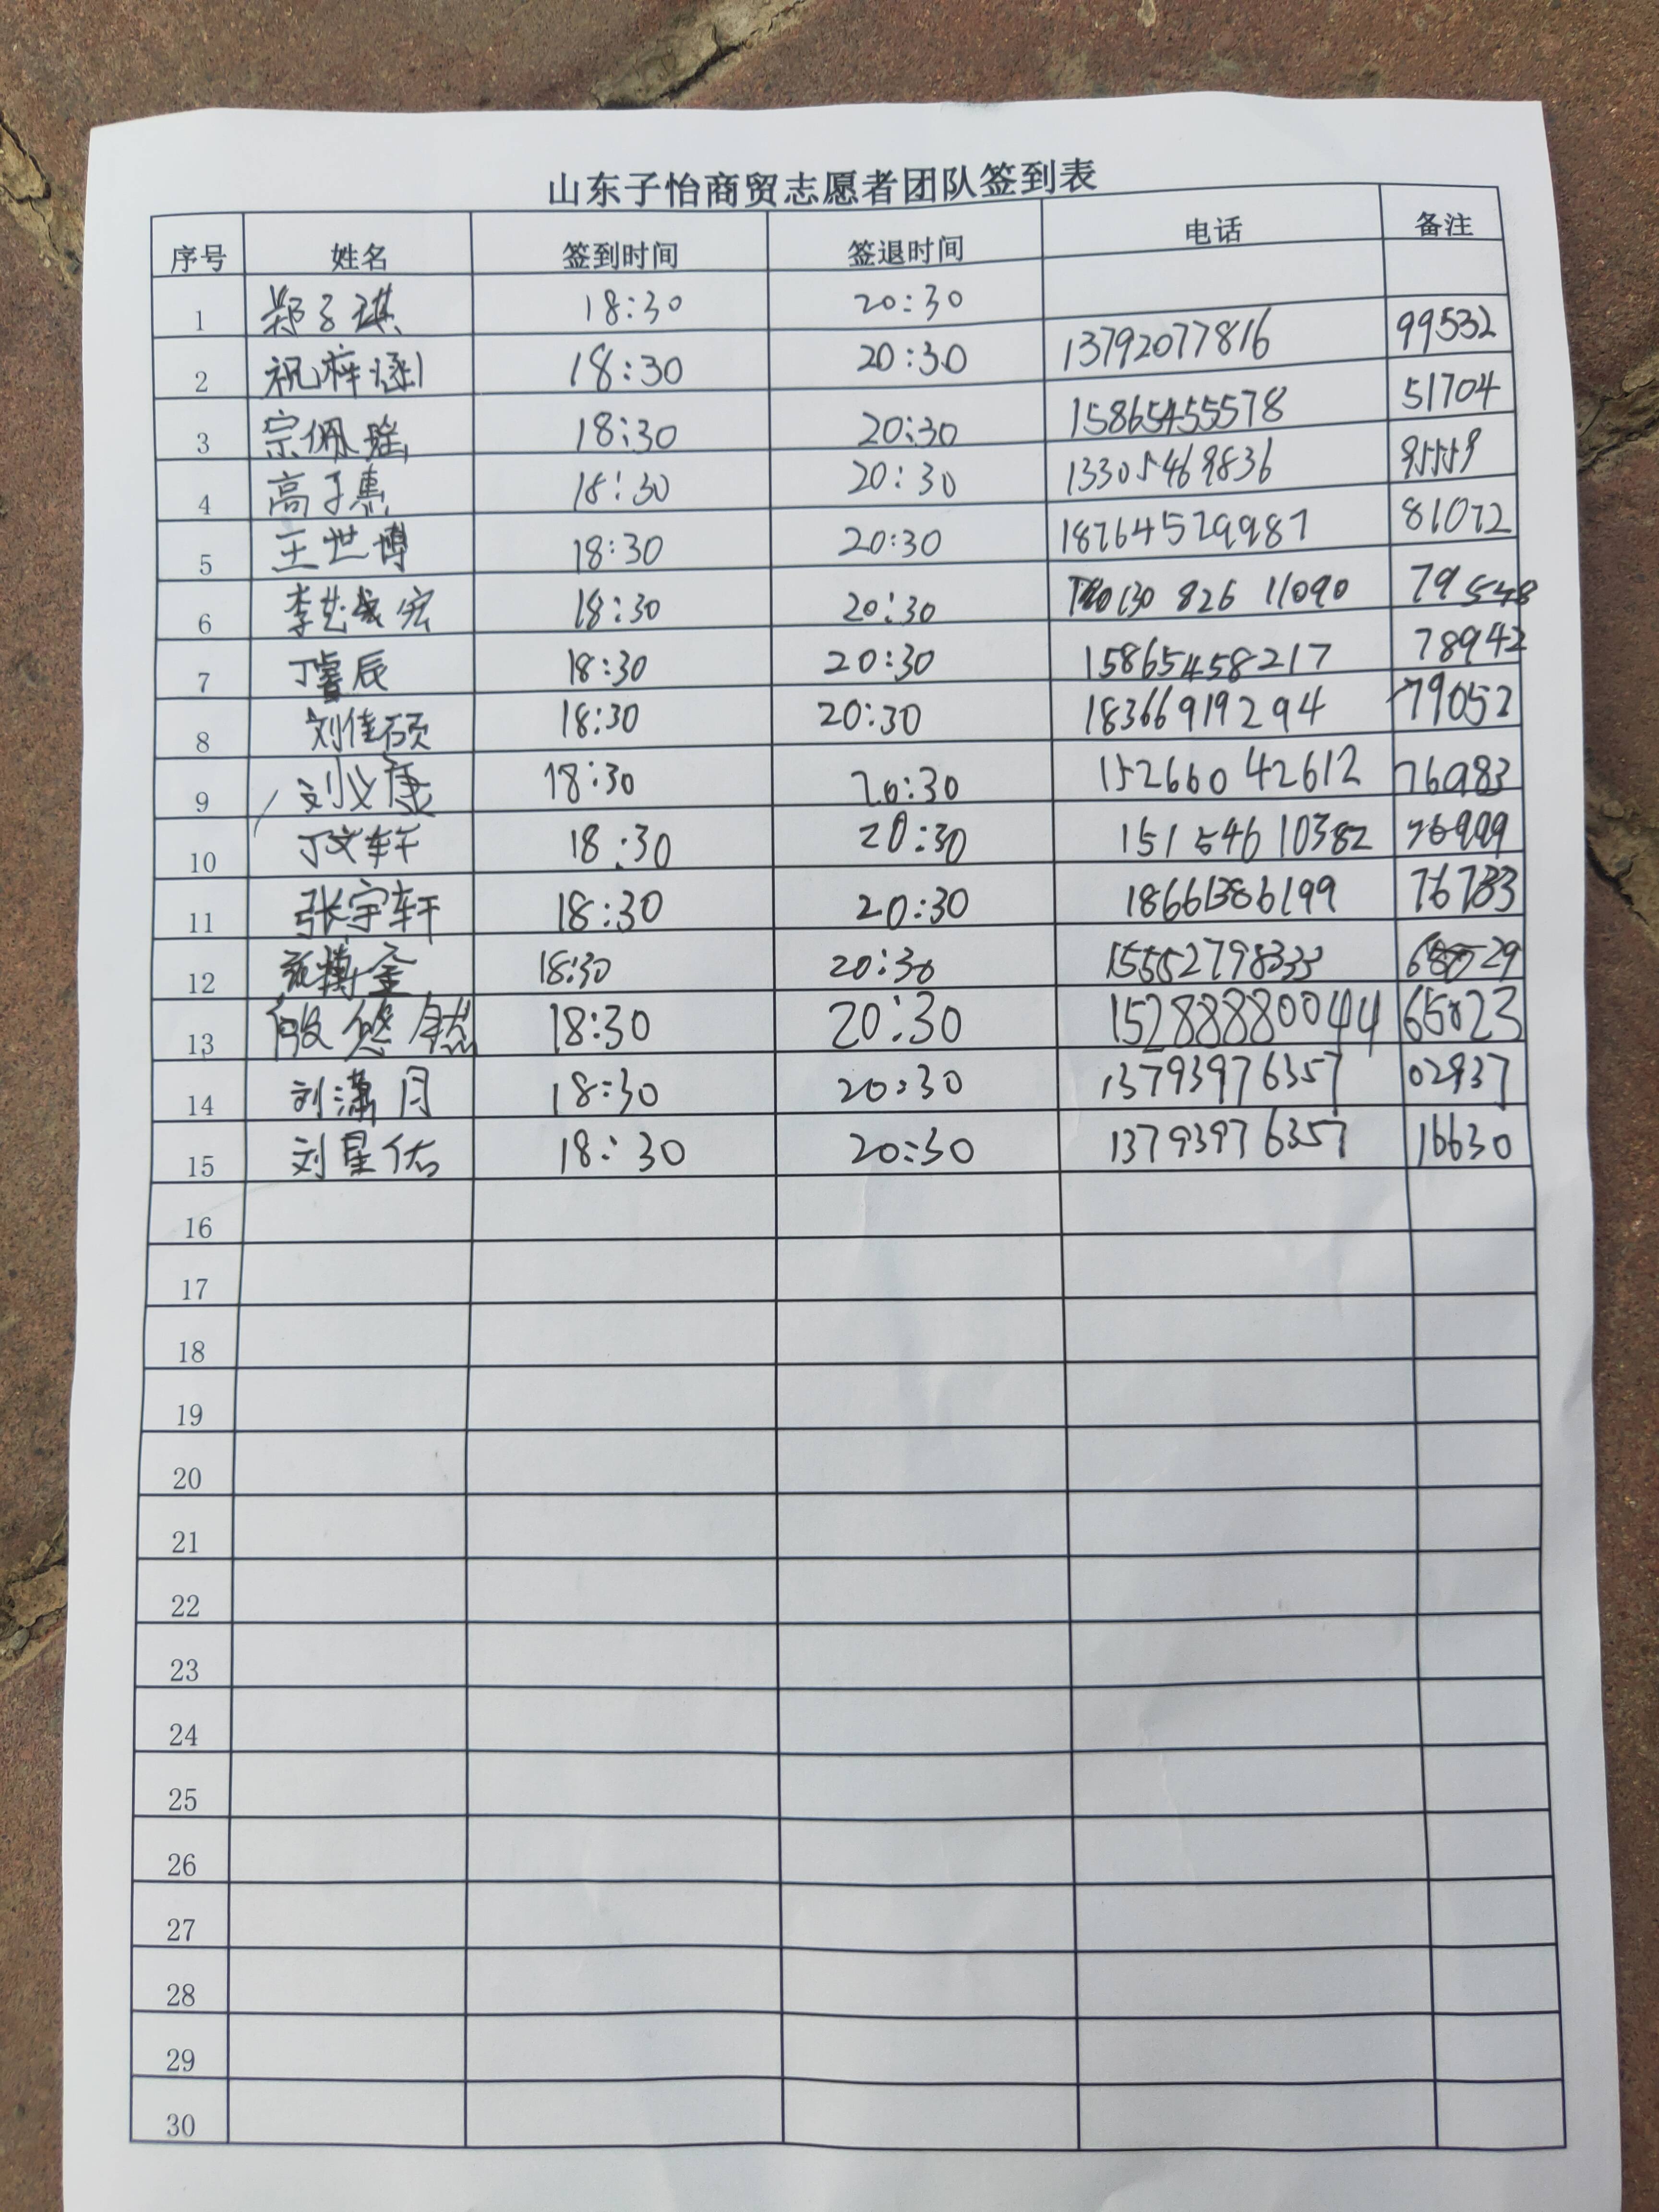 山东子怡商贸志愿者团队签到表
序号 姓名 签到时间 签退时间 电话 备注
1 郑子琪 18:30 20:30
2 祝梓涵 18:30 20:30 13792077816 99532
3 宗佩瑶 18:30 20:30 15865455578 51704
4 高于惠 18:30 20:30 13305469836 95559
5 王世博 18:30 20:30 18764579987 81072
6 李 宏 18:30 20:30 130 826 11090 79548
7 丁睿辰 18:30 20:30 15865458217 78942
8 刘佳硕 18:30 20:30 18366919294 79052
9 刘义康 18:30 20:30 152660 42612 76983
10 丁文轩 18:30 20:30 151 546 10382 76999
11 张宇轩 18:30 20:30 18661386199 76783
12 18:30 20:30 15552798333
13 悠然 18:30 20:30 15288880044 65023
14 刘潇月 18:30 20:30 13793976357 02937
15 刘星佑 18:30 20:30 13793976357 16630
16
17
18
19
20
21
22
23
24
25
26
27
28
29
30